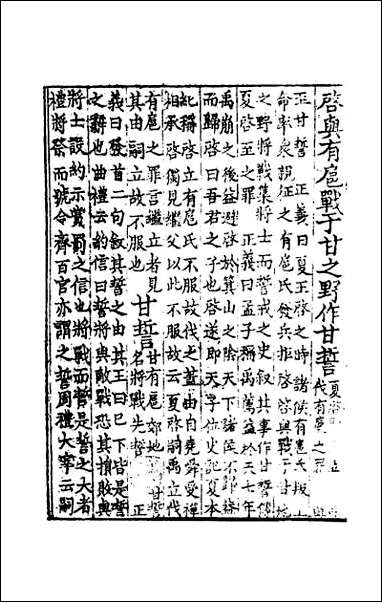 啓與有扈戰于甘之野作甘誓
夏啓
伐有扈之罪
正甘誓 正義曰夏王啓之時諸侯有扈氏叛王
命率衆親征之有扈氏發兵拒啓啓與戰于甘地
之野將戰集將士而誓戒之史叙其事作甘誓傳
夏啓至之罪 正義曰孟子稱禹薦益於天七年
禹崩之後益避啓於箕山之陰天下諸侯不歸益
而歸啓曰吾君之子也啓遂即天子位史記夏本
紀稱啓立有扈氏不服故伐之蓋由自堯舜受禪
相承啓獨見繼父以此不服故云夏啓嗣禹立伐
有扈之罪言繼立者見
其由嗣立故不服也
甘誓
甘有扈郊地
名將戰先誓
甘誓 正
義曰發首二句叙其誓之由其王曰已下皆是誓
之辭也曲禮云約信曰誓將與敵戰恐其損敗與
將士設約示賞罰之信也將戰而誓是誓之大者
禮將祭而號令齊百官亦謂之誓周禮大宰云嗣